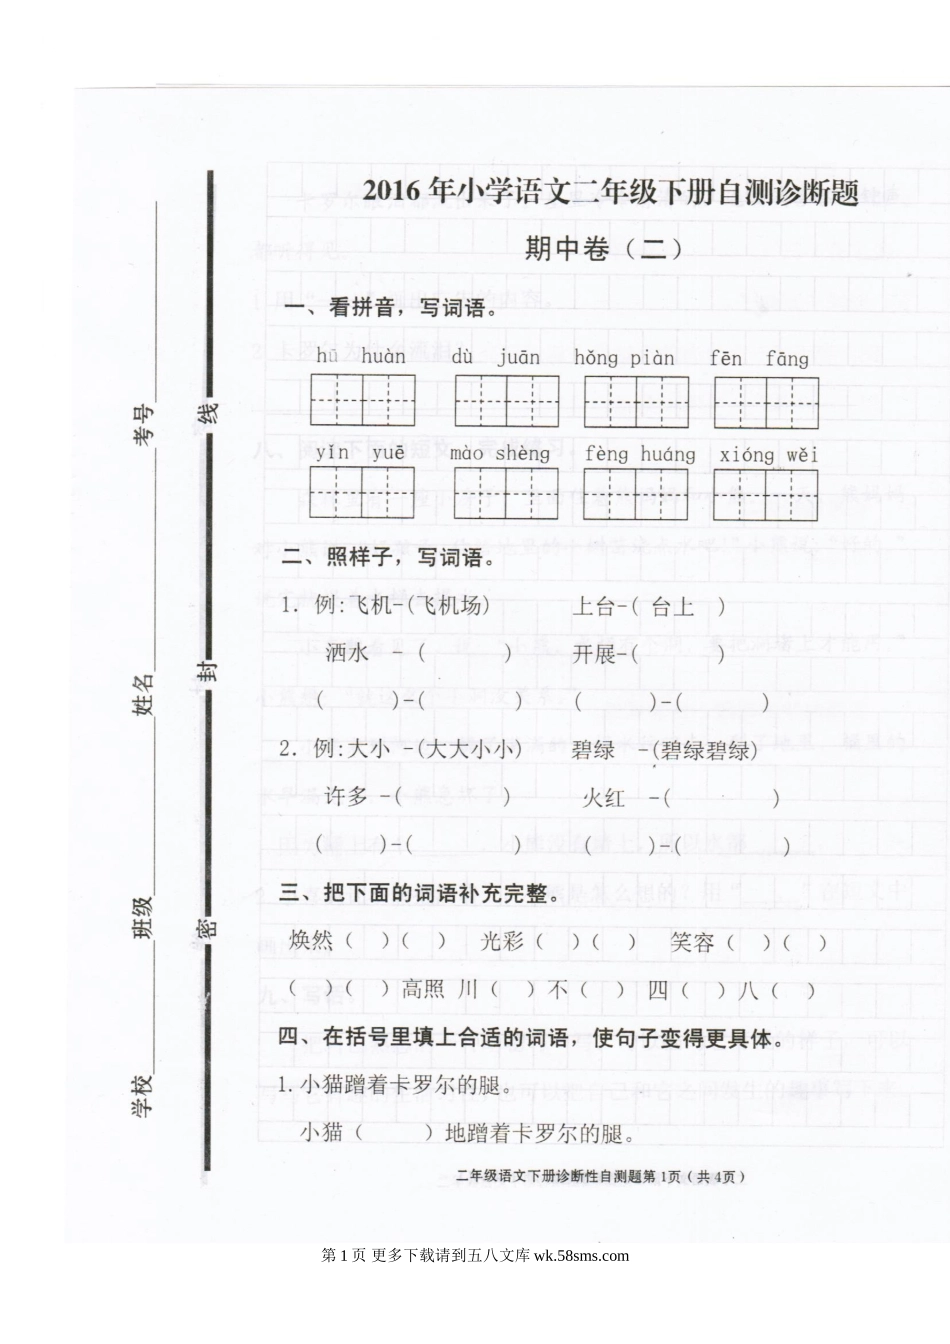 2016 年小学语文二年级下册自测诊断题
期中卷（二）
一、看拼音，写词语。
hū huàn dù juān hǒng piàn fēn fāng
yīn yuē mào shèng fèng huáng xióng wěi
二、照样子，写词语。
1. 例:飞机-(飞机场) 上台-( 台上 )
洒水 -( ) 开展-( )
( )-( ) ( )-( )
2. 例:大小 -(大大小小) 碧绿 -(碧绿碧绿)
许多 -( ) 火红 -( )
( )-( ) ( )-( )
三、把下面的词语补充完整。
焕然（ ）（ ） 光彩（ ）（ ） 笑容（ ）（ ）
（ ）（ ）高照 川（ ）不（ ） 四（ ）八（ ）
四、在括号里填上合适的词语，使句子变得更具体。
1.小猫蹭着卡罗尔的腿。
小猫（ ）地蹭着卡罗尔的腿。
二年级语文下册诊断性自测题第 1页（共 4页）
考号
姓名
班级
学校
线
封
密
第 1 页 更多下载请到五八文库 wk.58sms.com